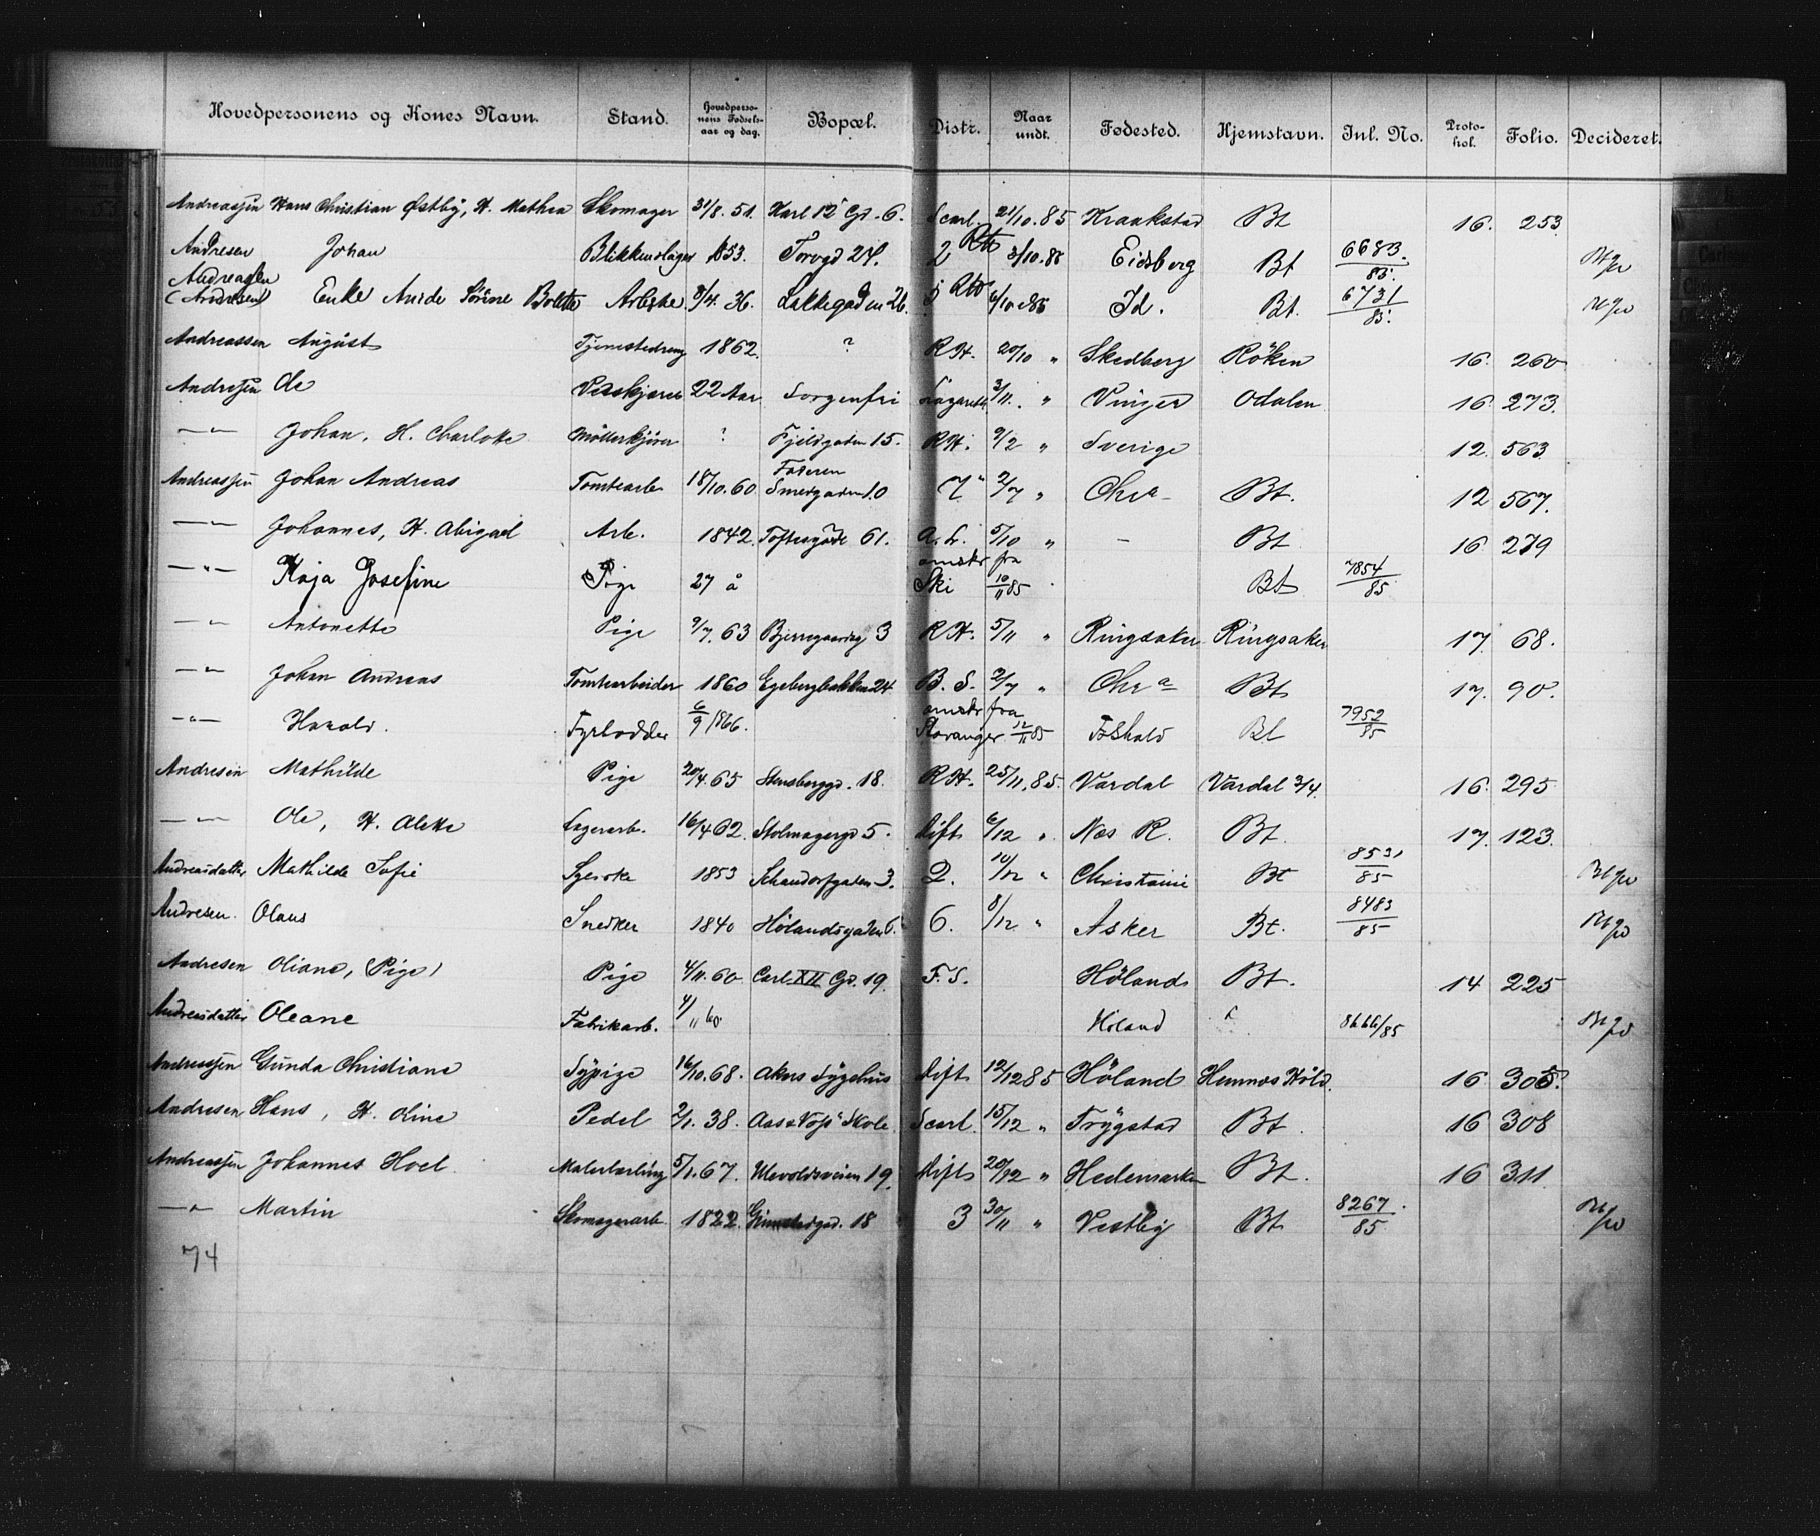 Hovedpersonens og Kones Navn. Stand. Hovedpersonens Fødselsaar og dag. Bopæl. Distr. Naar undt. Fødested. Hjemstavn. Inl. No. Protokol. Folio. Decideret.
Andreassen Hans Christian Østby, H. Mathea Skomager 31/8. 51. Karl 12 Gd. 6. Scarl. 21/10. 85 Kraakstad Bt 16. 253
Andresen Johan Blikkenslager 1853. Torvgd 24. 2 3/10. 85 Eidsberg Bt 6683/85.
Andreassen (Andresen) Enke Anide Sørine Arbske. 3/4. 36. Lakkegaden 26. 5 6/10 85 Id. Bt. 6731/85.
Andreassen August Tjenestedreng 1862. ? R.H. 20/10 " Skedberg Röken 16. 260
Andresen Ole Vedskjærer 22 Aar Sorgenfri 3/11. " Vinger Odalen 16 273.
— " — Johan, H. Charlotte Möllerkjører ? Fjeldgaden 15. R.H. 9/2 " Sverige 12. 563
Andreassen Johan Andreas Tomtearb 18/10. 60. Faderen Smedgaden 10 7 2/7 " Chra Bt. 12 567.
— " — Johannes, H. Abigael Arb. 1842. Toftesgade 61. A.S. 5/10 " - Bt 16 279
— " — Kaja Josefine Pige 27 å omskr fra Ski 10/11 85 Bt 7854/85
— " — Antonette Pige 9/7. 63 Bjerregaardsg 3 R.H. 5/11 " Ringsaker Ringsaker 17. 68.
— " — Johan Andreas Tomtearbeider 1860 Egebergbakken 24 B.S. 2/7 " Chra Bt 17. 90.
— " — Harald. Fyrbødder 6/9 1866. omskr fra Stavanger 12/11 85 Bt 7952/85
Andresen Mathilde Pige 20/4. 65 Stensberggd. 18. R.H. 25/11. 85. Vardal Vardal 3/4. 16. 295
— " — Ole, H. Alette Lagerarb. 16/4 62. Stolmagergd 5. Dift 6/12 " Næs R. Bt. 17. 123.
Andreasdatter Mathilde Sofie Syerske 1853 Schandorfgaden 3. 2. 10/12 " Christania Bt 8531/85
Andresen. Olaus Snedker 1840 Hølandsgaden 6. 6. 8/12 " Asker Bt. 8483/85
Andresen Oliane, (Pige) Pige 4/11. 60 Carl XII Gd. 19. F.S. Höland Bt. 14 225
Andreasdatter Oleane Fabrikarb. 4/11 60 Høland " 8666/85
Andreassen Gunda Christiane Sypige 16/10. 68. Akers Sygehus Dift 12/12 85 Höland Hemnæs Höld. 16 305.
Andresen Hans, H. Oline Pedel 2/1. 38. Aas & Voss' Skole Scarl. 15/12 " Trygstad Bt. 16 308
Andreassen Johannes Hoel Malerlærling 5/1. 67. Ulevoldsveien 19. Dift 20/12 " Hedemarken Bt. 16 311
— " — Martin Skomagerarb. 1822. Grimstadgd. 18 3 30/11 " Vestby Bt 8267/85
74